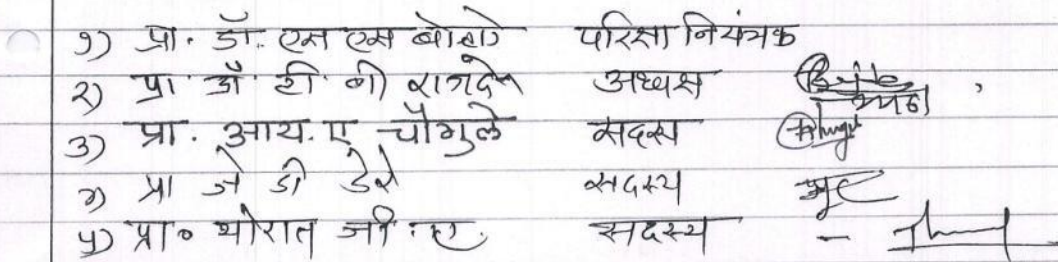 १) प्रा. डॉ. एस एस बोहारे परिक्षा नियंत्रक
२) प्रा डॉ ही बी राजदेव अध्यक्ष
३) प्रा. आय. ए चौगुले सदस्य
४) प्रा जे डी डेरे सदस्य
५) प्रा० थोरात जी. ए. सदस्य -